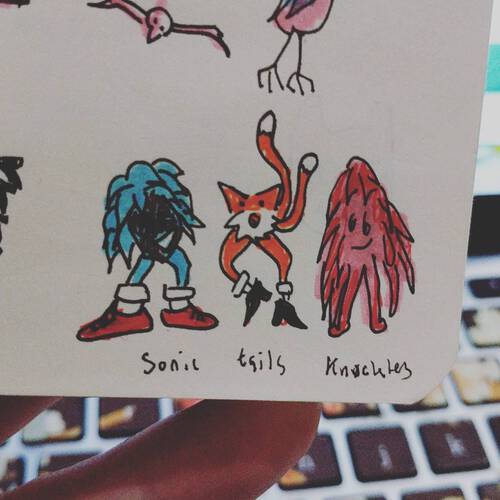 Sonic tails Knuckles
j k